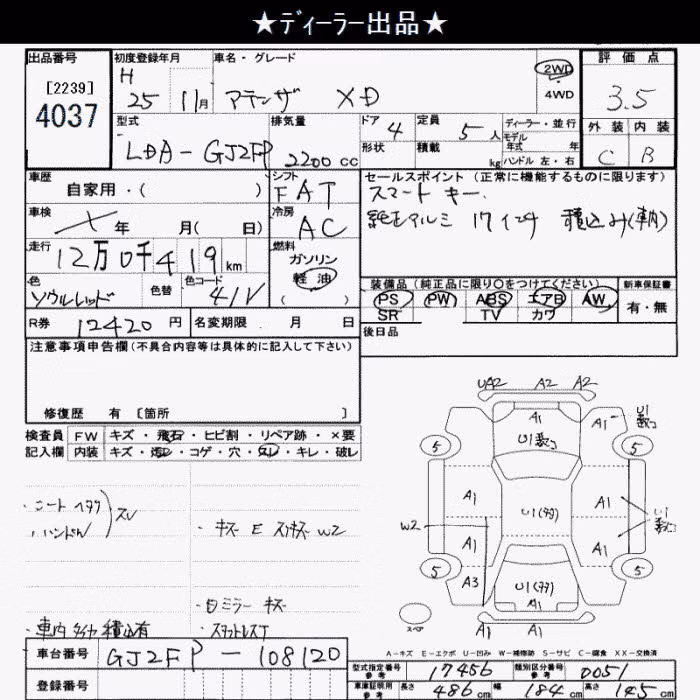 ★ディーラー出品★
出品番号 初度登録年月 車名・グレード 評価点
[2239] 4037
H 25 11月 アテンザ XD 2WD 4WD 3.5
型式 排気量 ドア 4 定員 5人 ディーラー・並行 外装 内装
LDA-GJ2FP 2200cc 形状 積載 kg モデル年式 年 ハンドル 左・右 C B
車歴 シフト セールスポイント(正常に機能するものに限ります)
自家用・( ) FAT スマートキー
車検 年 月( 日) 冷房 AC 純正アルミ 17インチ 積込み(車内)
走行 燃料
12万0千419km ガソリン
色 色替 色コード 軽油 装備品(純正品に限り○をつけてください) 新車保証書
ソウルレッド 41V ( ) PS PW ABS エアB AW 有・無
SR TV カワ
R券 12420円 名変期限 月 日 後日品
注意事項申告欄(不具合内容等は具体的に記入して下さい)
修復歴 有 [箇所 ]
検査員 FW キズ・飛石・ヒビ割・リペア跡・×要
記入欄 内装 キズ・汚レ・コゲ・穴・スレ・キレ・破レ
UA2 A2 A2
A1 A1 U1
U1
5 5
A1 U1 A1 U1
W2 A1 A1
5 5
A3 U1 A1
A1 A1
・シート ヘタリ
・ハンドル スレ
・キズ E W2
・ミラー キズ
・スタットレスT
・車内タイヤ積込有
スペア
A-キズ E-エクボ U-凹み W-補修跡 S-サビ C-腐食 XX-交換済
車台番号 GJ2FP-108120
登録番号
型式指定番号 参考 17456 類別区分番号 参考 0051
車庫証明用 参考 長さ 486cm 幅 184cm 高さ 145cm